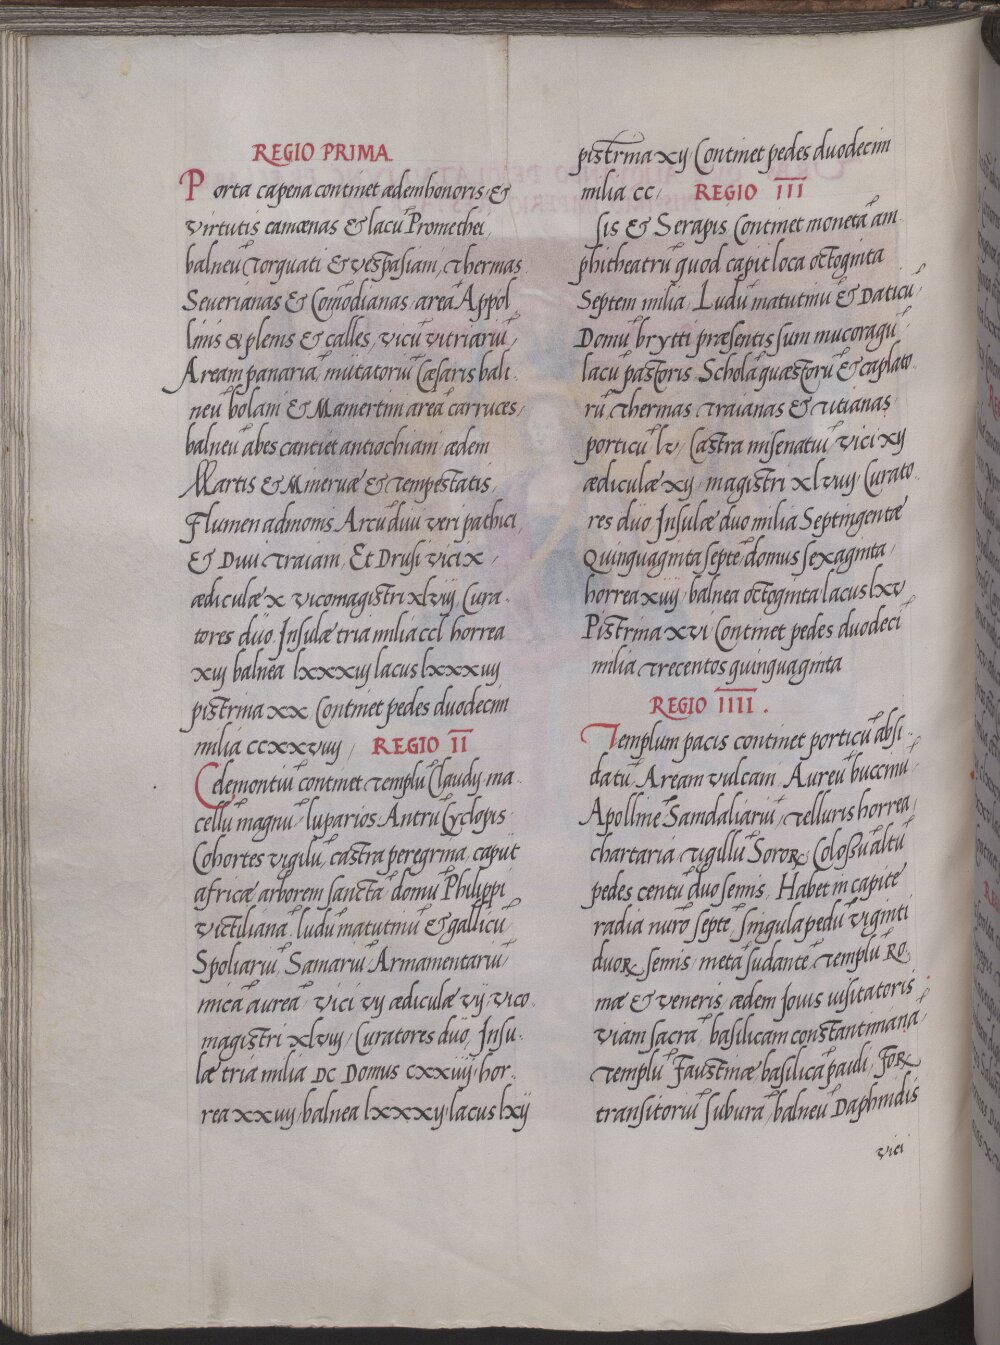 REGIO PRIMA
Porta capena continet ædem bonoris &
virtutis camœnas & lacū Promethei
balneū torquati & vespasiani, thermas
Severianas & Comōdianas areā Appol
linis & plenis & calles, vicū vitriariū
Aream panariā mūtatoriū Cæsaris bali
neū bolani & Mamertini areā carruces
balneū abescantiet antiochiani ædem
Martis & Minervæ & tempestatis
Flumen admonis Arcū divi veri pathici
& Divi traiani, Et Drusi vici x
ædiculæ x vicomagistri xlviij Cura
tores duo Insulæ tria milia ccl horrea
xiij balnea lxxxiij lacus lxxxiiij
pistrina xx Continet pedes duodecim
milia ccxxviiij REGIO II
Celemontiū continet templū Claudij ma
cellū magnū luparios Antrū Cyclopis
Cohortes vigilū, castra peregrina, caput
africæ arborem sanctā domū Philippi
victiliana ludū matutinū & gallicū
Spoliariū Samariū Armamentariū
micā aureā vici vij ædiculæ vij vico
magistri xlviij Curatores duo, Insu
læ tria milia DC Domus cxxiiij hor
rea xxiiij balnea lxxxij lacus lxij
pistrina xij Continet pedes duodecim
milia cc REGIO III
sis & Serapis Continet monetā am
phitheatrū quod capit loca octoginta
Septem milia Ludū matutinū & Daticū
Domū brytti præsentis sum mucoragū
lacū pastoris Scholā quæstorū & caplato
rū thermas traianas & titianas
porticū lv Castra misenatiū vici xij
ædiculæ xij magistri xlviij Curato
res duo Insulæ duo milia Septingentæ
Quinquaginta septē domus sexaginta
horrea xviij balnea octoginta lacus lxv
Pistrina xvi Continet pedes duodecī
milia trecentos quinquaginta
REGIO IIII.
Templum pacis continet porticū absi
datū Aream vulcani Aureū buccinū
Apollinē Samdaliariū telluris horrea
chartaria tigillū Soror Colossū altū
pedes centū duo semis Habet in capite
radia nuro septē singula pedū viginti
duor semis metā sudantē templū Ro
mæ & veneris ædem Jovis visitatoris
viam sacrā basilicam constantinianā
templū Faustinæ basilicā pauli, For
transitoriū suburā balneū Daphnidis
vici